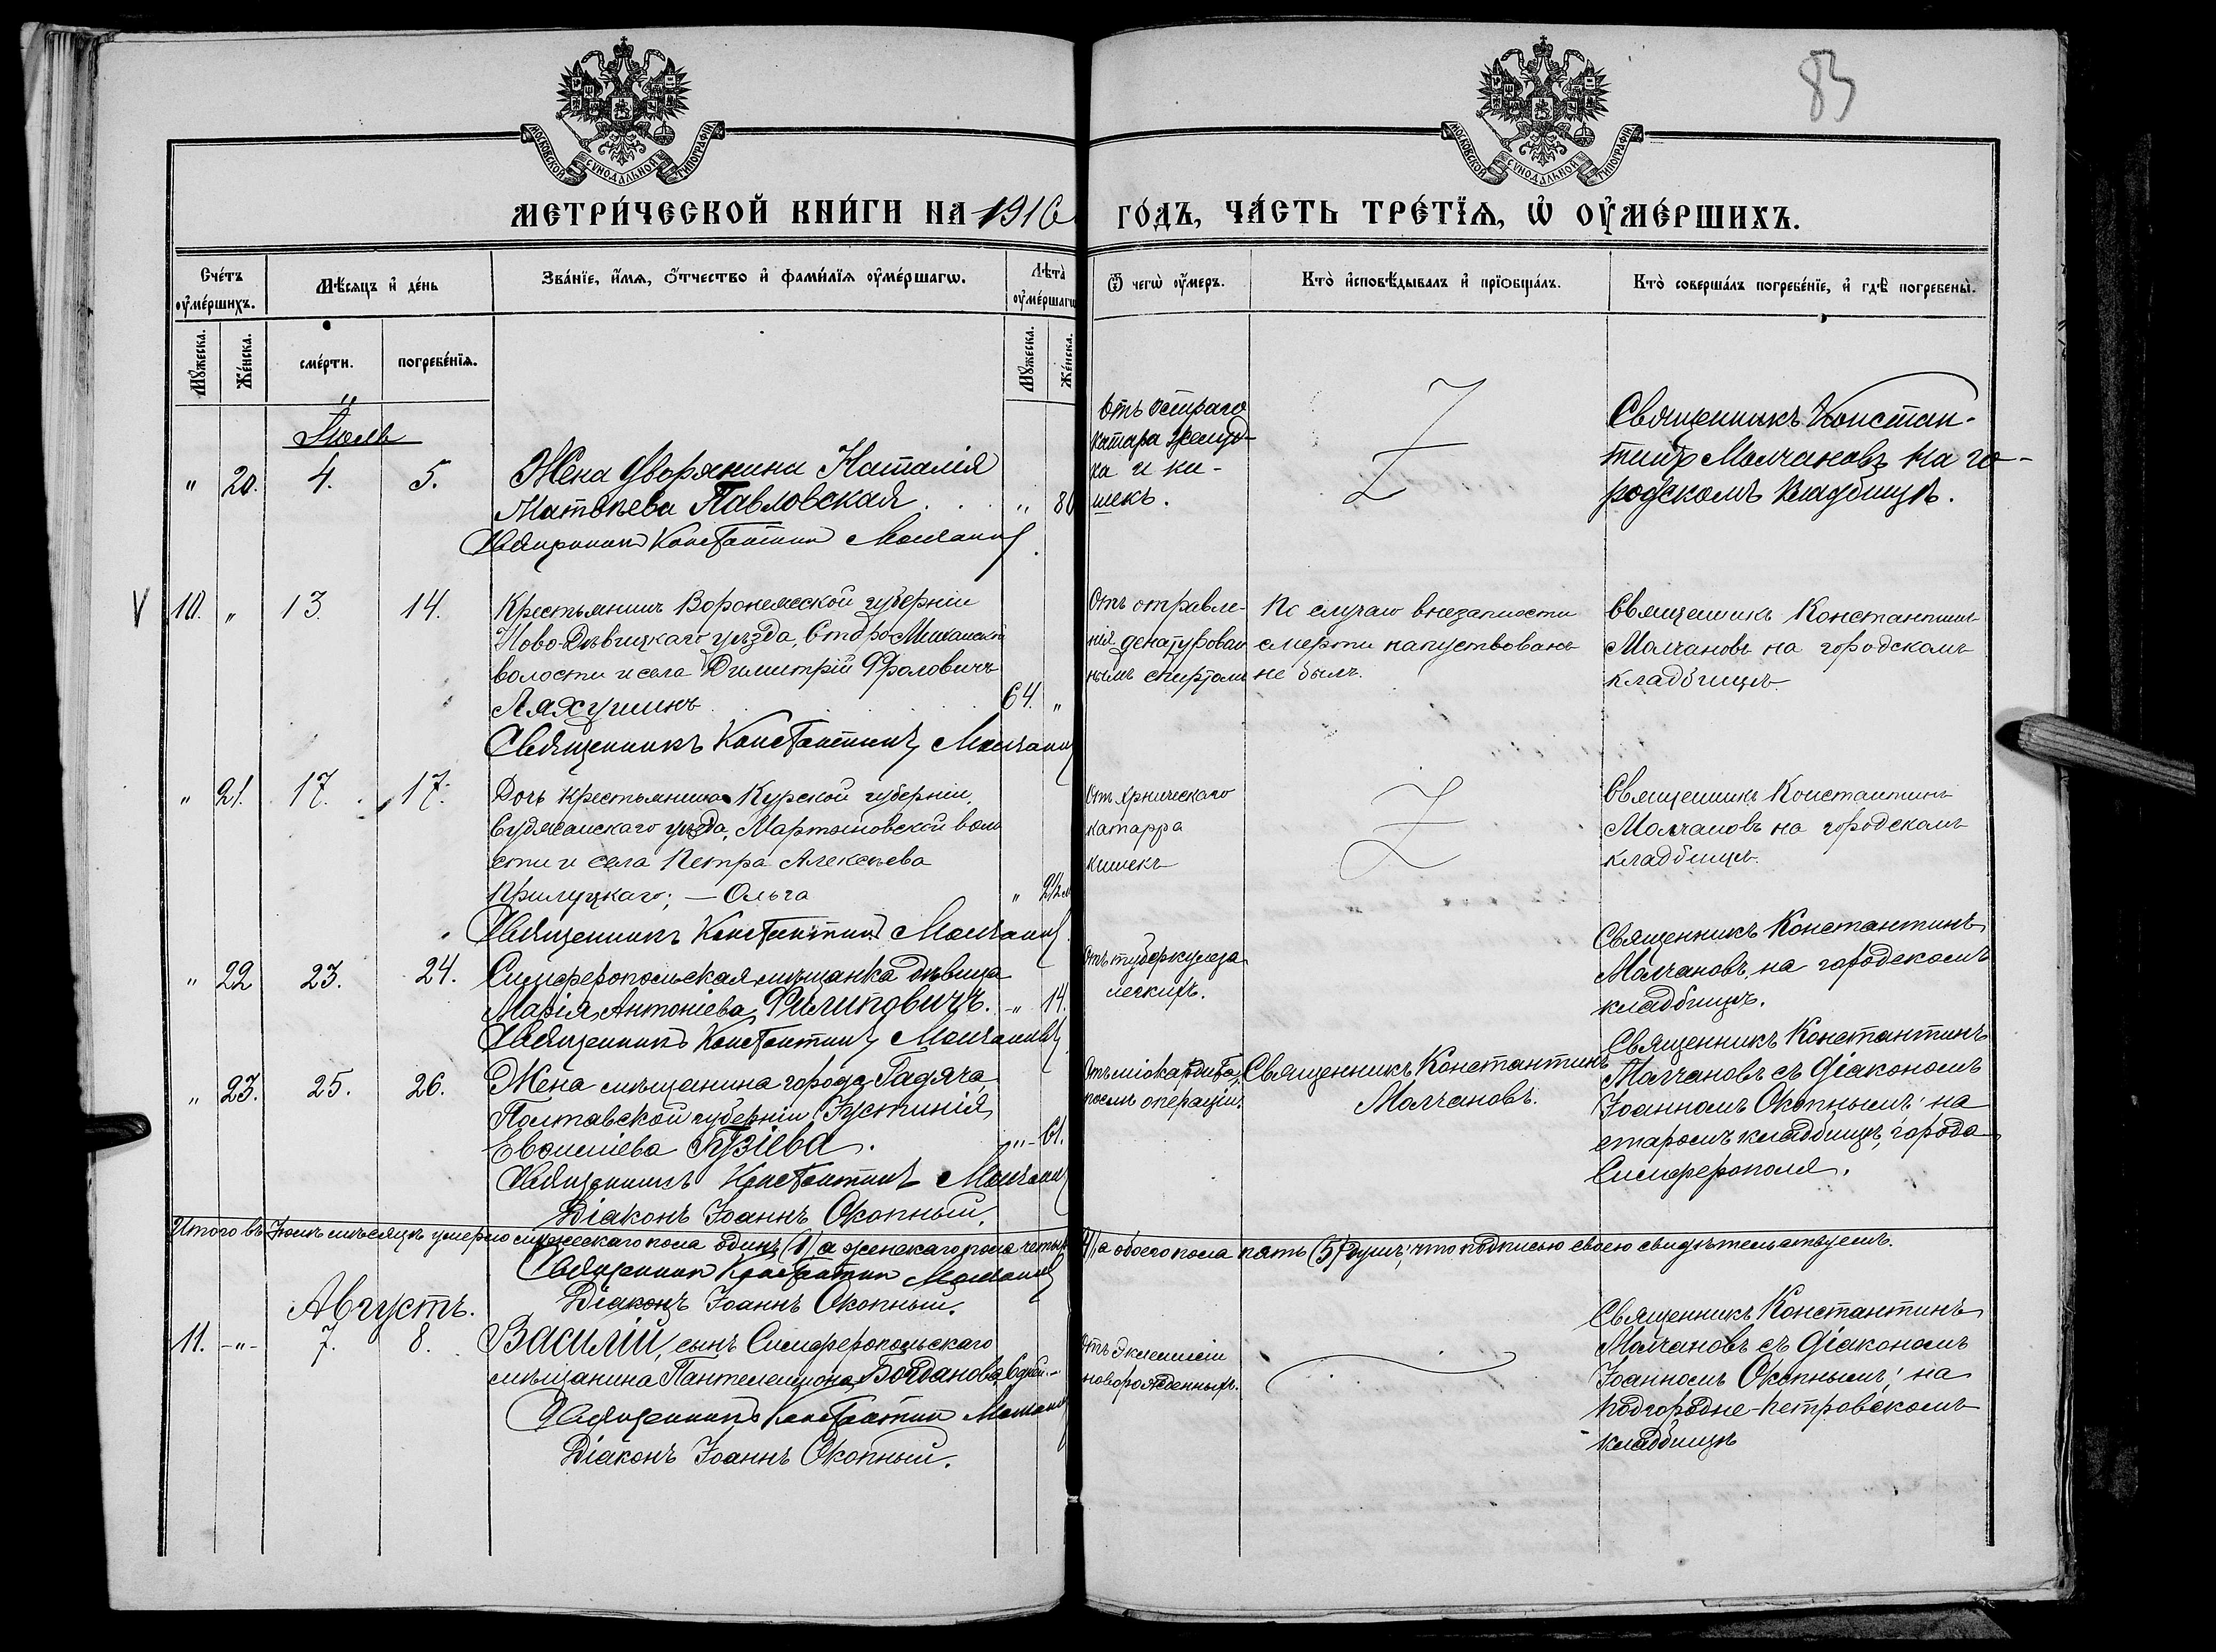 83
МОСКОВСКОЙ СУНОДАЛЬНОЙ ТИПОГРАФІИ
МОСКОВСКОЙ СУНОДАЛЬНОЙ ТИПОГРАФІИ
МЕТРИ́ЧЕСКОЙ КНИ́ГИ НА 1916 ГО́ДЪ, ЧА́СТЬ ТРЕ́ТЇѦ, Ѡ҆ ОУ҆МЕ́РШИХЪ.
Сче́тъ оу҆ме́ршихъ.
Мѣ́сѧцъ и҆ де́нь
Зва́нїе, и҆́мѧ, ѻ҆́тчество и҆ фами́лїѧ оу҆ме́ршагѡ.
Лѣта̀ оу҆ме́ршагѡ
Ѿ чегѡ̀ оу҆́меръ.
Кто̀ и҆сповѣ́дывалъ и҆ прїѡбща́лъ.
Кто̀ соверша́лъ погребе́нїе, и҆ гдѣ̀ погребены̀.
Мꙋ́жеска.
Же́нска.
сме́рти.
погребе́нїѧ.
Мꙋ́жеска.
Же́нска.
Іюль
" 20. 4. 5. Жена дворянина Наталія
Матѳѣева Павловская " 80
Священникъ Константинъ Молчановъ.
Отъ остраго
катара желуд-
ка и ки-
шекъ.
Священникъ Констан-
тинъ Молчановъ на го-
родскомъ кладбищѣ.
V 10. " 13. 14. Крестьянинъ Воронежской губерніи
Ново-Дѣвицкаго уѣзда, Старо-
волости и села Димитрій Фроловичъ
Ляхушинъ 64. "
Священникъ Константинъ Молчановъ
Отъ отравле-
нія денатурован
нымъ спиртомъ
По случаю внезапности
смерти напутствованъ
не былъ.
Священникъ Константинъ
Молчановъ на городскомъ
кладбищѣ.
" 21. 17. 17. Дочь крестьянина Курской губерніи,
Суджанскаго уѣзда, Мартыновской воло
сти и села Петра Алексѣева
Прилуцкаго; — Ольга "
Священникъ Константинъ Молчановъ
Отъ хрническаго
катарра
кишекъ
Священникъ Константинъ
Молчановъ на городскомъ
кладбищѣ.
" 22 23. 24. Симферопольская мѣщанка дѣвица
Марія Антоніева Филиповичъ. " 14.
Священникъ Константинъ Молчановъ
Отъ туберкулеза
легкихъ.
Священникъ Константинъ
Молчановъ, на городскомъ
кладбищѣ.
" 23. 25. 26. Жена мѣщанина города Гадяча,
Полтавской губерніи Іустинія
Евѳиміева " 61.
Священникъ Константинъ Молчановъ
Діаконъ Іоаннъ Окопный.
Отъ міокардита,
послѣ операціи.
Священникъ Константинъ
Молчановъ.
Священникъ Константинъ
Молчановъ съ діакономъ
Іоанномъ Окопнымъ; на
старомъ кладбищѣ, города
Симферополя.
Итого въ Іюлѣ мѣсяцѣ умерло мужескаго пола одинъ (1) а женскаго пола четыре (4) а обоего пола пять (5) душъ; что подписью своею свидѣтельствуемъ.
Священникъ Константинъ Молчановъ
Діаконъ Іоаннъ Окопный.
Августъ.
11. -"- 7. 8. Василій, сынъ Симферопольскаго
мѣщанина Пантелеимона Богданова 6 дней.
Священникъ Константинъ Молчановъ
Діаконъ Іоаннъ Окопный.
Отъ эклямпсіи
новорожденныхъ.
Священникъ Константинъ
Молчановъ съ діакономъ
Іоанномъ Окопнымъ; на
подгородне-Петровскомъ
кладбищѣ